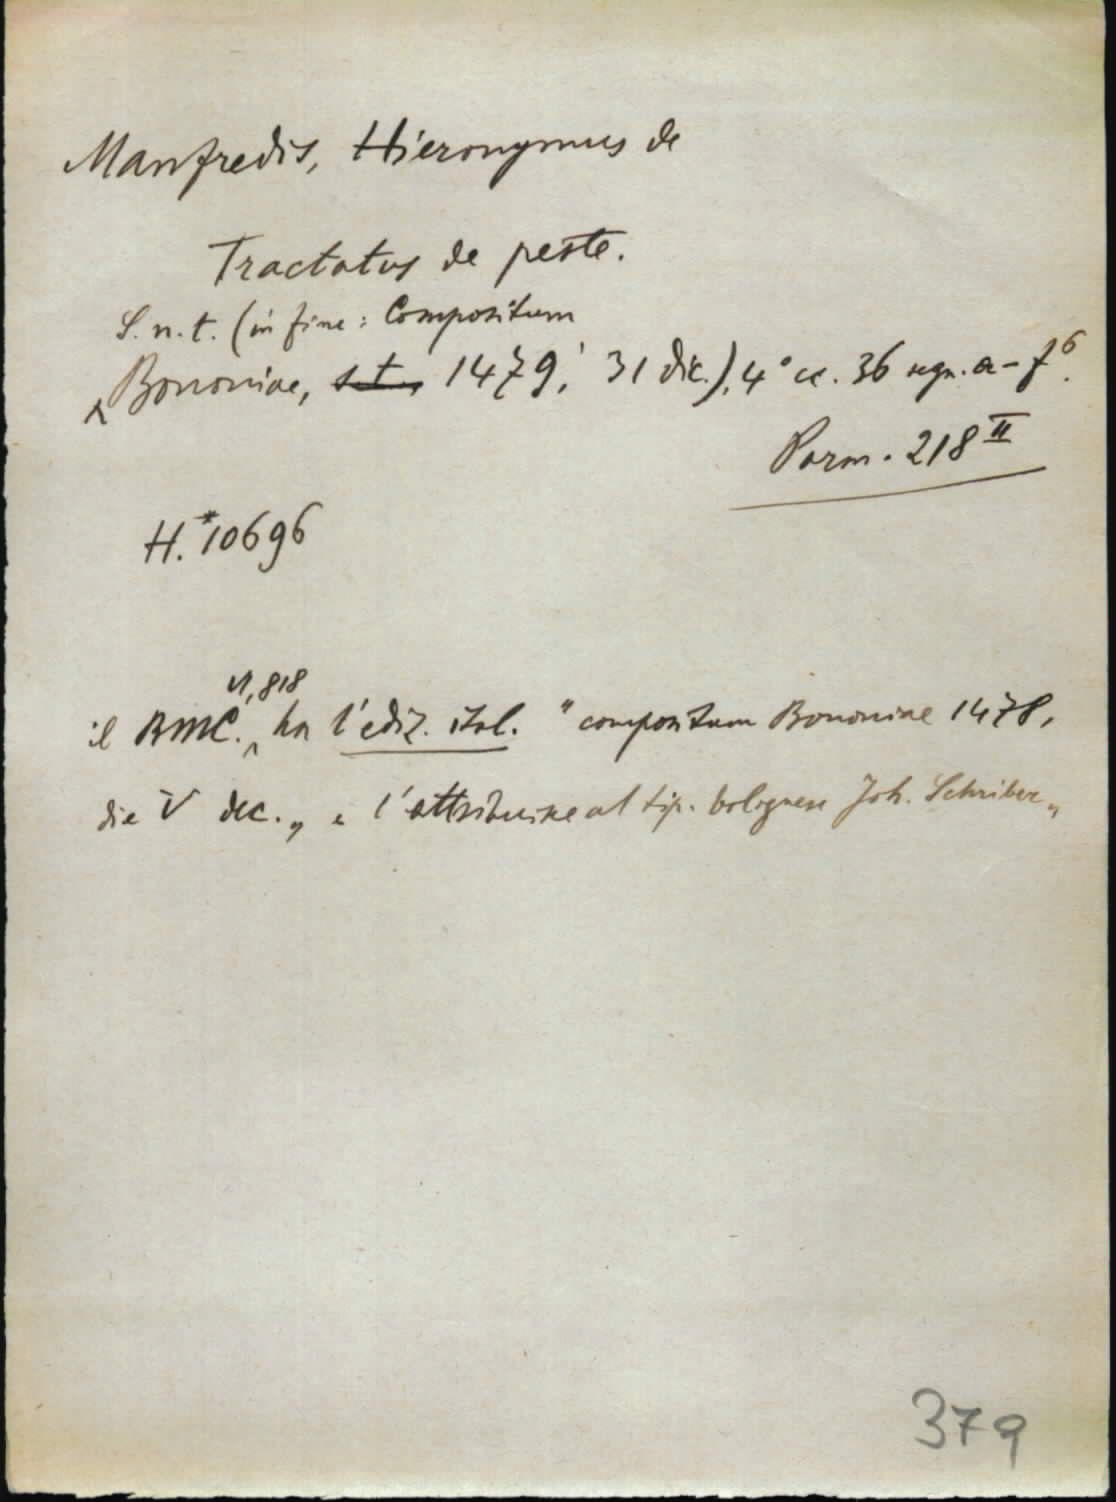 Manfredis, Hieronymus de
Tractatus de peste.
S.n.t. (in fine: Compositum
Bononiae, s.t., 1479, 31 dic.), 4° cc. 36 segn. a-f⁶.
Parm. 218 II
H.*10696
VI, 818
il BMC. ha l'ediz. ital. "compositum Bononiae 1478,
die V dec.„ e l'attribuisce al tip. bolognese Joh. Schriber„
379